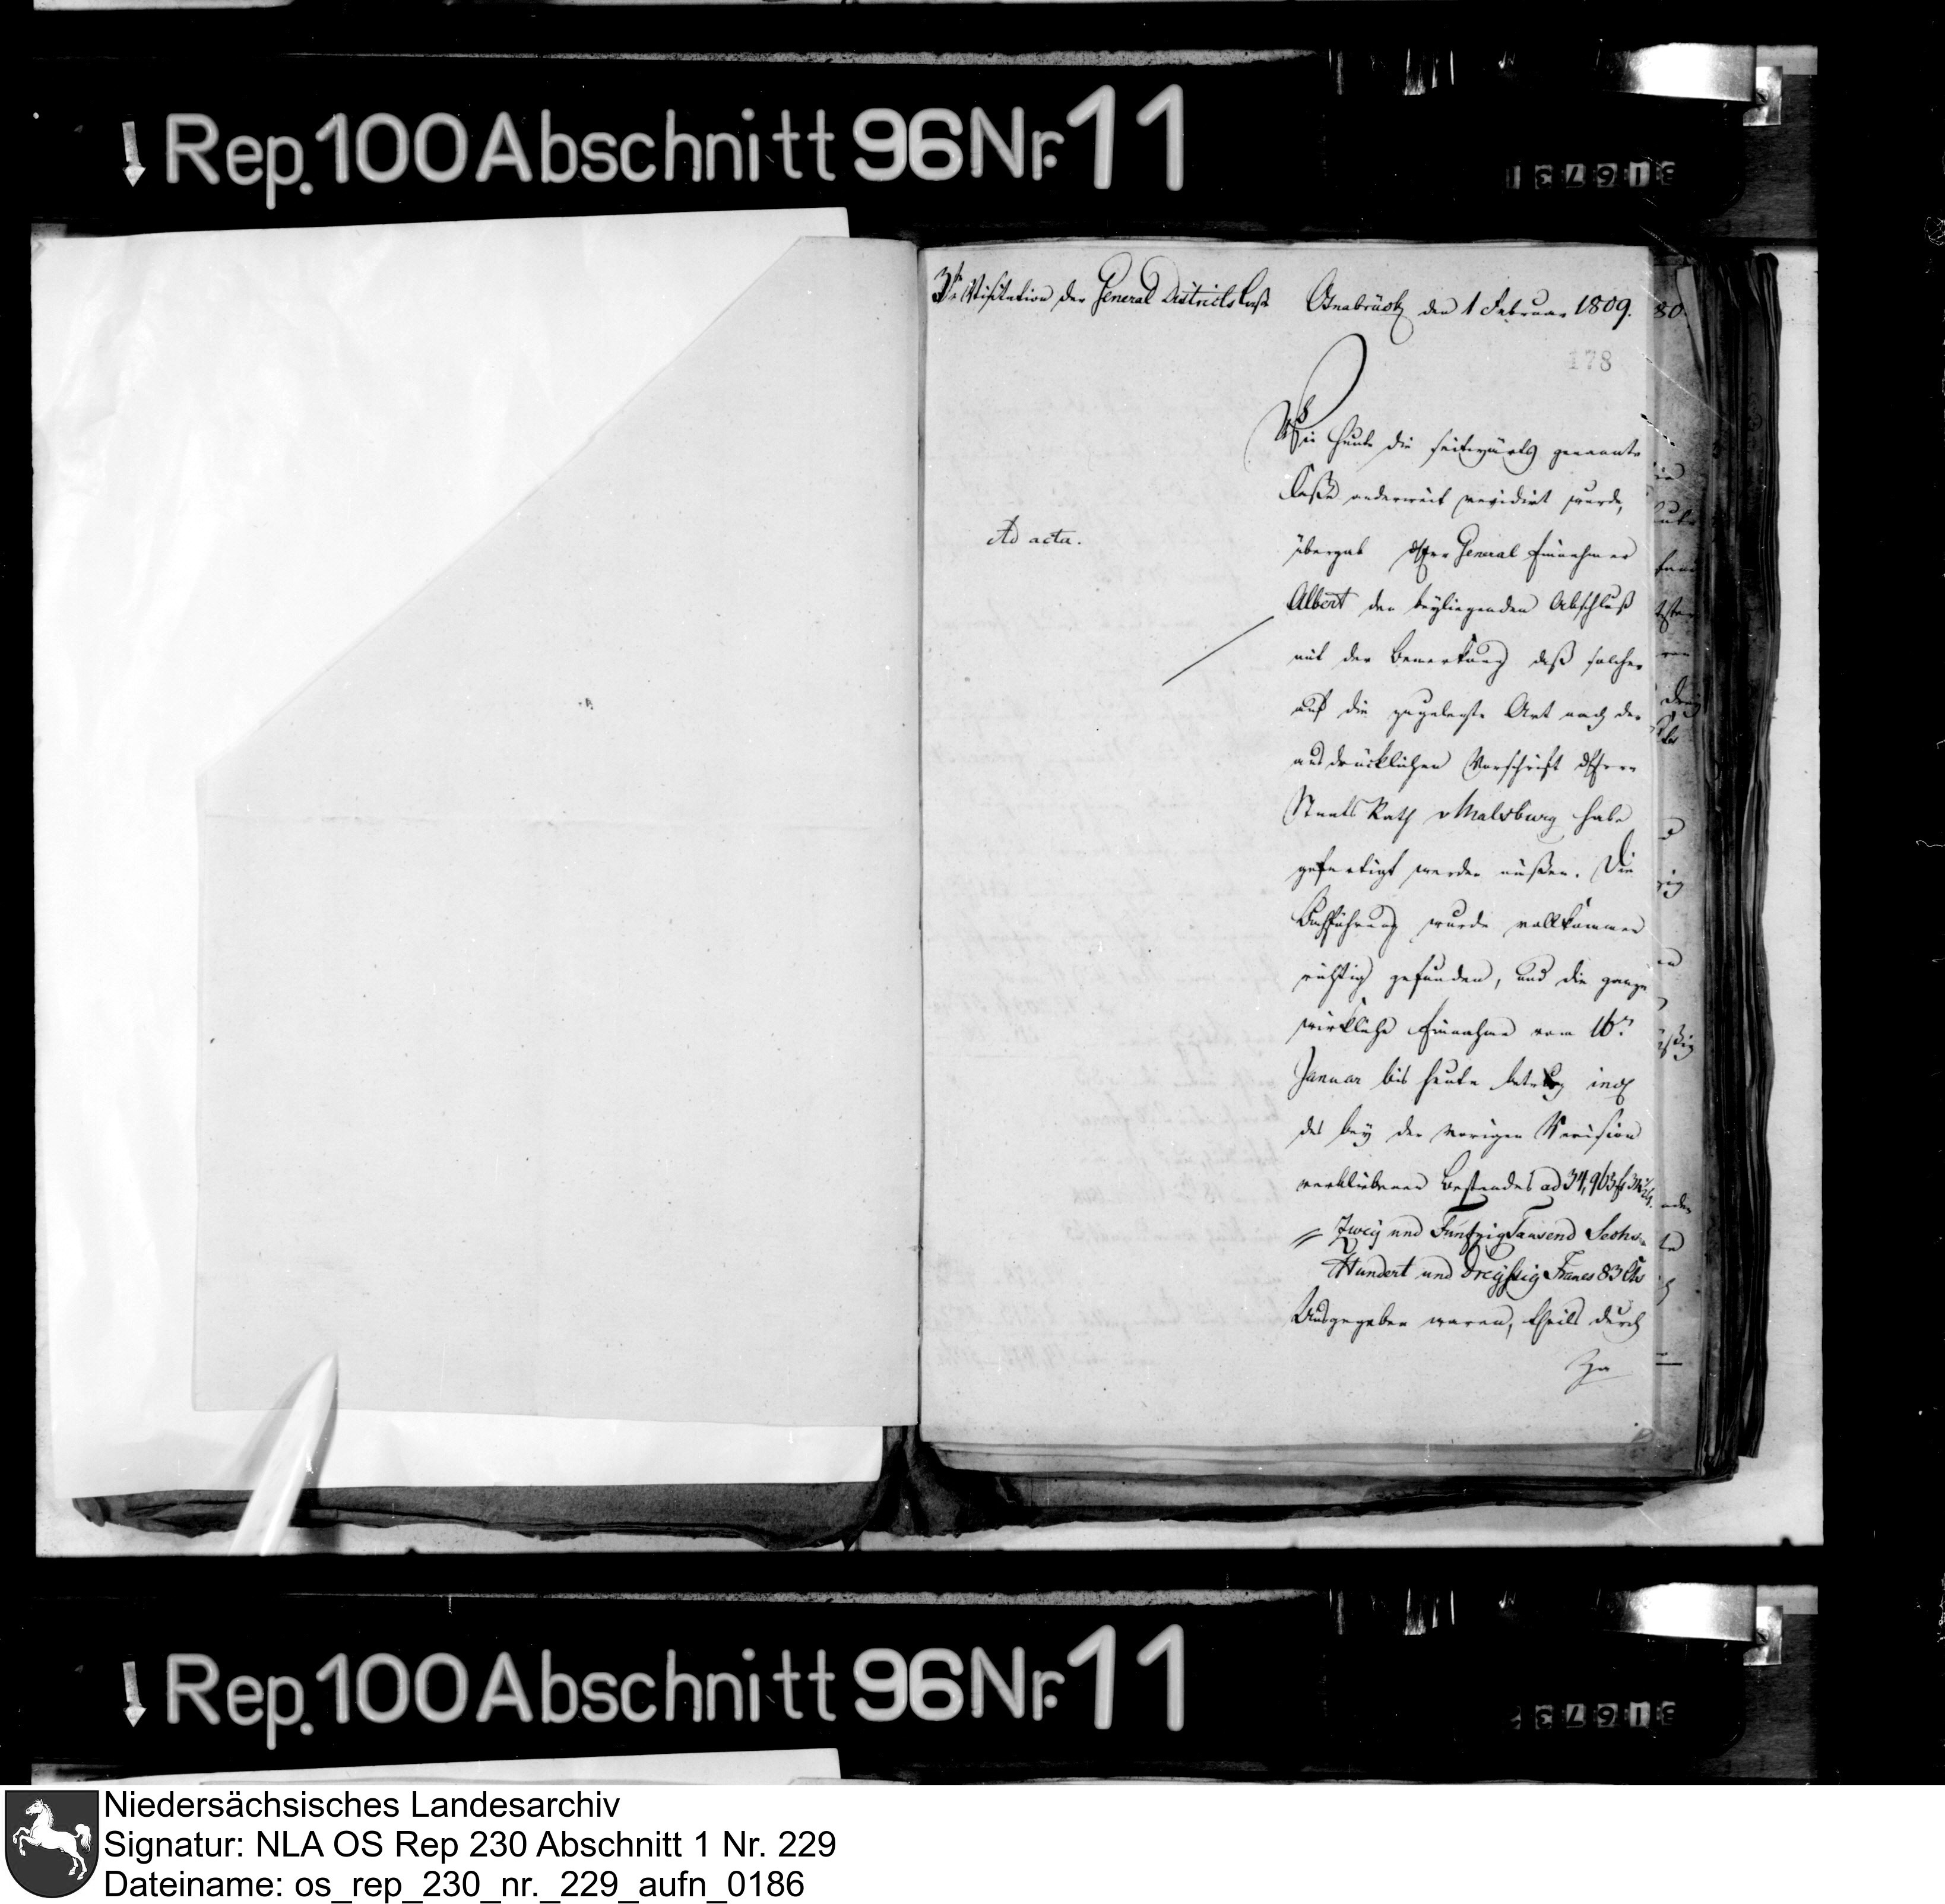 Rep. 100 Abschnitt 96 Nr. 11
3te Visitation der General Districts Casse
Osnabrück den 1 Februar 1809.
80.
178
Ad acta.
Wie heute die seitwärts genannte
Casse anderweit revidirt wurde,
übergab Herr General Einnehmer
Albert den beyliegenden Abschluß
mit der Bemerkung daß solcher
auf die Art nach der
ausdrücklichen Vorschrift des Herrn
Staats Rath v Malsburg habe
gefertigt werden müßen. Die
Buchführung wurde vollkommen
richtig gefunden, und die ganze
wirkliche Einnahme vom 16t
Januar bis heute betrug incl
des bey der vorigen Revision
verbliebenen Bestandes ad
Zwey und Fünfzig Tausend Sechs
Hundert und Dreyßig Francs 83 Cts
Ausgegeben waren, theils durch
Rep. 100 Abschnitt 96 Nr. 11
Niedersächsisches Landesarchiv
Signatur: NLA OS Rep 230 Abschnitt 1 Nr. 229
Dateiname: os_rep_230_nr._229_aufn_0186